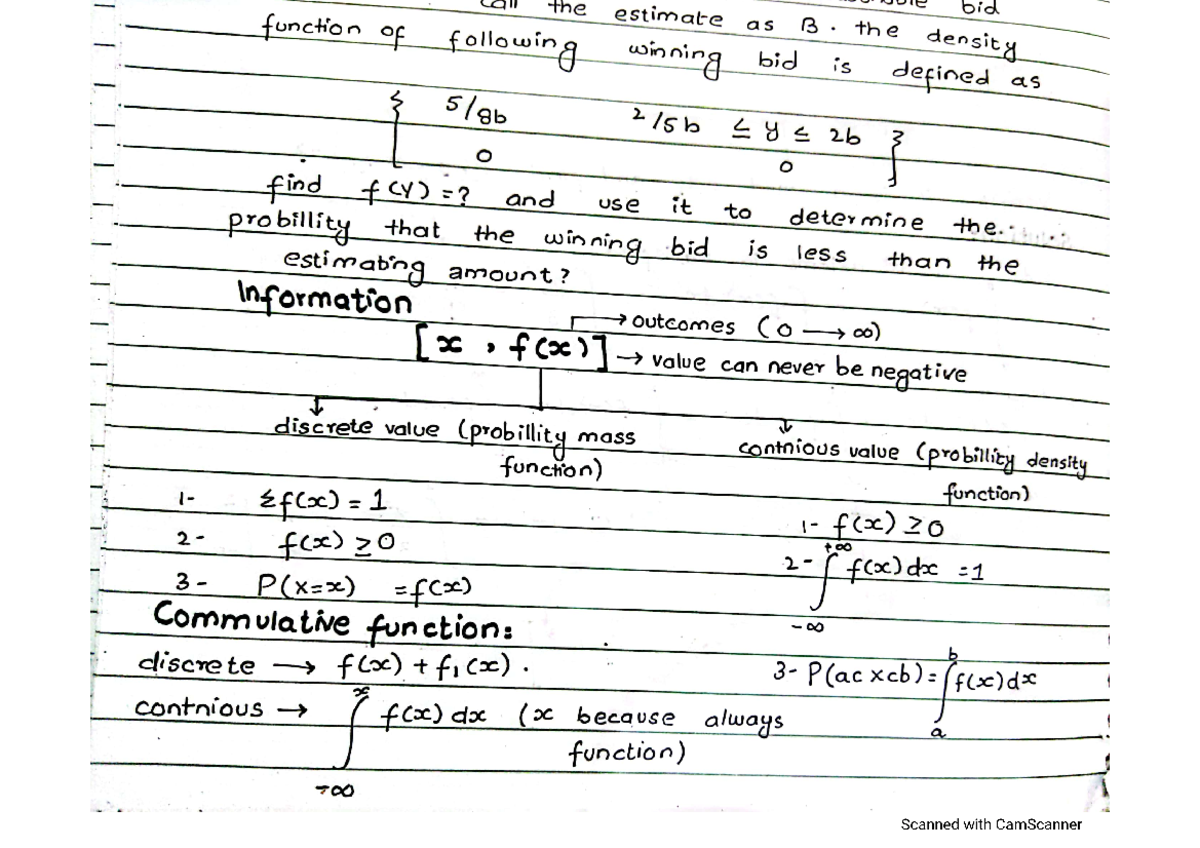 call the estimate as B. the density
bid
function of following winning bid is defined as
{ 5/8b 2/5b ≤ y ≤ 2b }
0 0
find f(y) =? and use it to determine the.
probillity that the winning bid is less than the
estimating amount?
Information
→ outcomes (0 → ∞)
[x , f(x)] → value can never be negative
discrete value (probillity mass
function)
contnious value (probillity density
function)
1- ≤f(x) = 1
2- f(x) ≥0
3- P(x=x) =f(x)
1- f(x) ≥0
2- ∫ +∞ -∞ f(x) dx =1
3- P(ac xcb) = ∫ b a f(x)dx
Commulative function:
discrete → f(x) + f₁(x) .
contnious → ∫ x -∞ f(x) dx (x because always
function)
Scanned with CamScanner